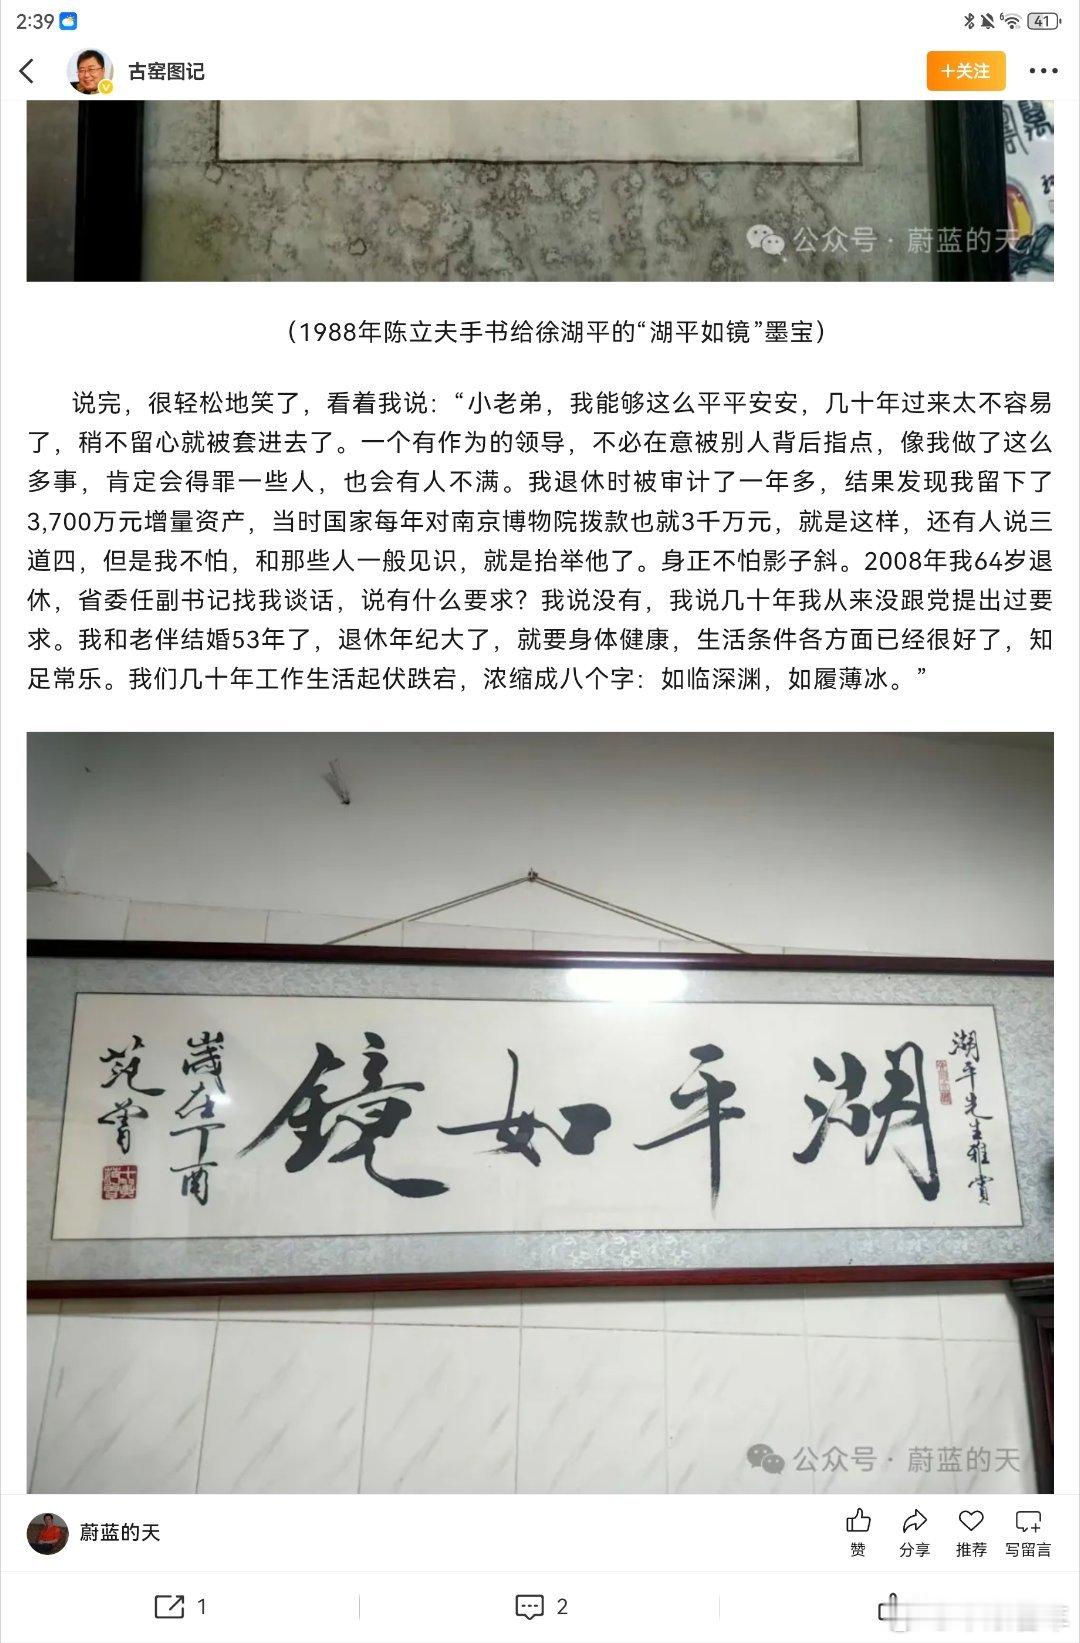 2:39
6
41
古窑图记
+关注
公众号 · 蔚蓝的天
（1988年陈立夫手书给徐湖平的“湖平如镜”墨宝）
说完，很轻松地笑了，看着我说：“小老弟，我能够这么平平安安，几十年过来太不容易
了，稍不留心就被套进去了。一个有作为的领导，不必在意被别人背后指点，像我做了这么
多事，肯定会得罪一些人，也会有人不满。我退休时被审计了一年多，结果发现我留下了
3,700万元增量资产，当时国家每年对南京博物院拨款也就3千万元，就是这样，还有人说三
道四，但是我不怕，和那些人一般见识，就是抬举他了。身正不怕影子斜。2008年我64岁退
休，省委任副书记找我谈话，说有什么要求？我说没有，我说几十年我从来没跟党提出过要
求。我和老伴结婚53年了，退休年纪大了，就要身体健康，生活条件各方面已经很好了，知
足常乐。我们几十年工作生活起伏跌宕，浓缩成八个字：如临深渊，如履薄冰。”
湖平先生雅赏
湖平如鏡
歲在丁酉
范曾
公众号 · 蔚蓝的天
蔚蓝的天
赞
分享
推荐
写留言
1
2